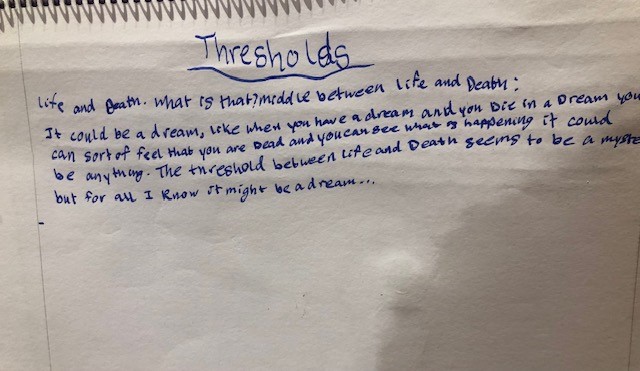 Thresholds
Life and Death. What is that? middle between Life and Death:
It could be a dream, Like when you have a dream and you Die in a Dream you
can sort of feel that you are Dead and you can see what is happening it could
be anything. The threshold between Life and Death seems to be a myste
but for all I know it might be a dream...